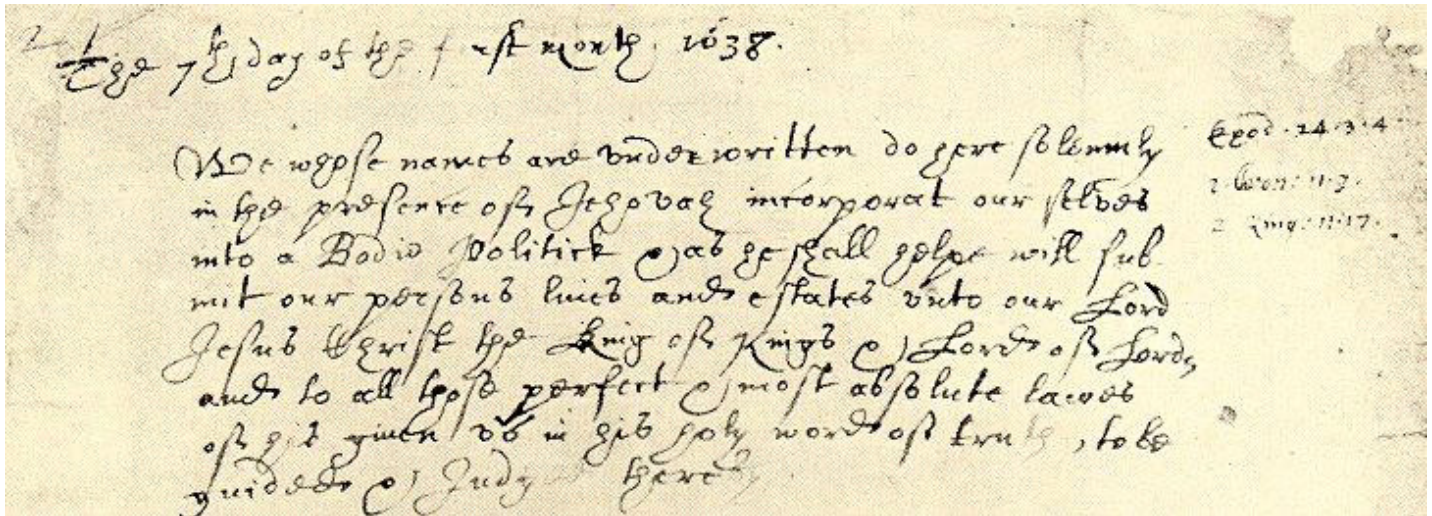 The 7th day of the first month. 1638.
We whose names are underwritten do here solemnly Exod. 24.3.4
in the presence of Jehovah incorporat our selves 2 Cron: 11.3.
into a Bodie Politick & as he shall helpe will sub- 2 King: 11.17.
mit our persons lives and estates unto our Lord
Jesus Christ the King of Kings & Lord of Lords
and to all those perfect & most absolute lawes
of his given us in his holy word of truth, to be
guided & Judged thereby